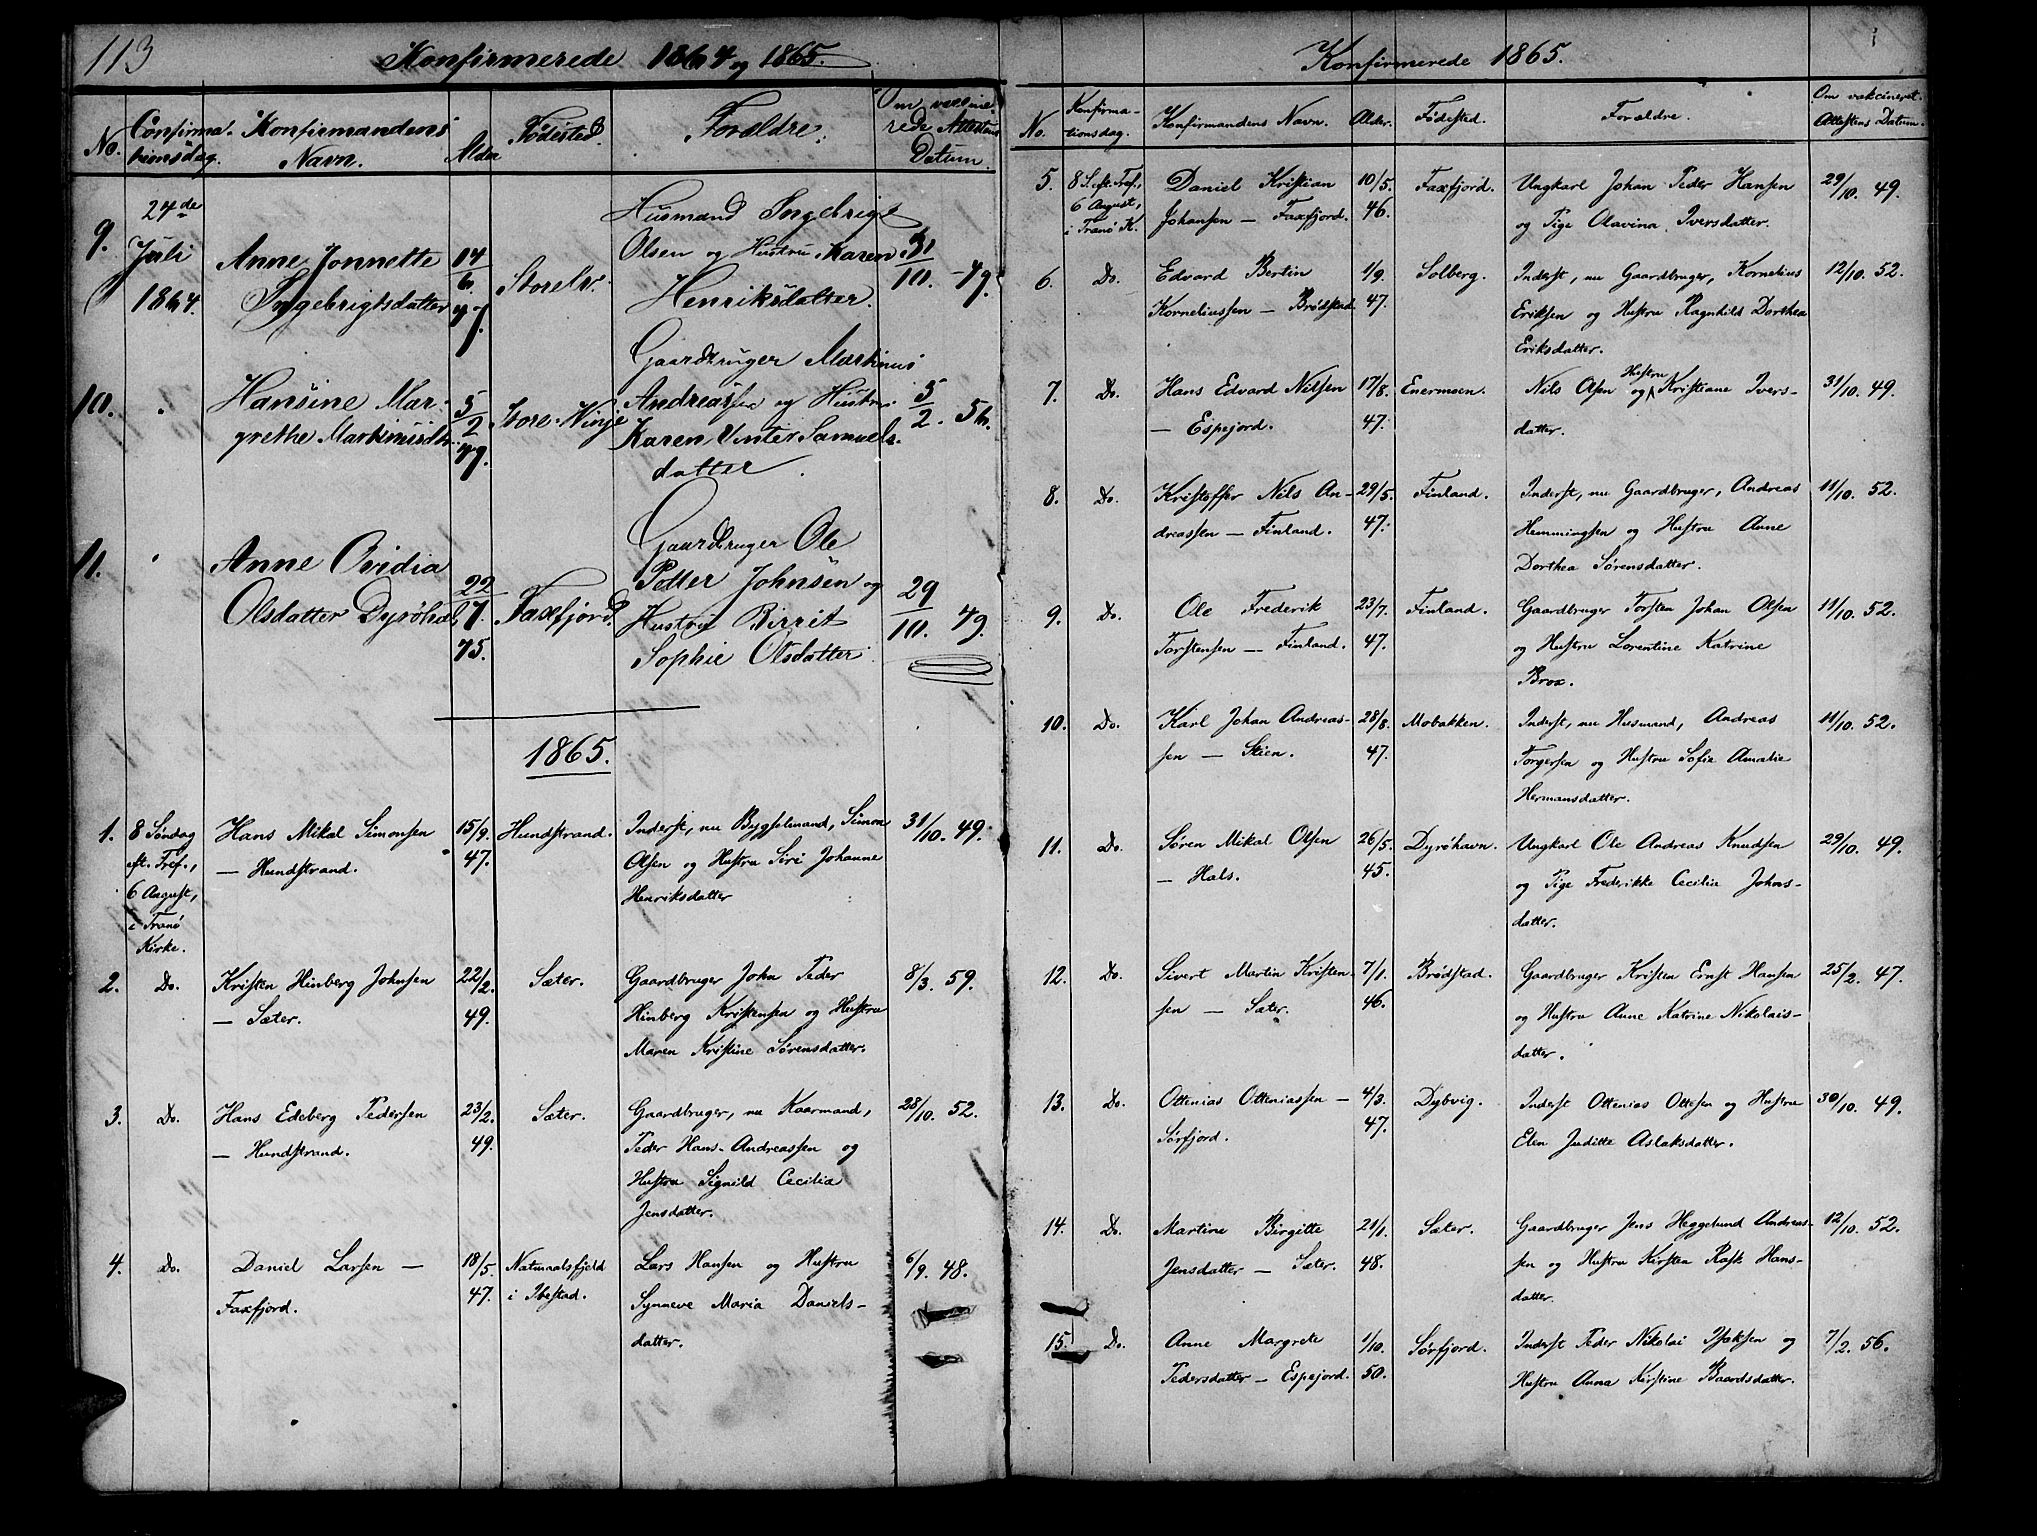 113
Konfirmerede 1864 og 1865.
No.
Confirma-
tionsdag.
Konfirmandens
Navn.
Alder
Födested.
Forældre.
Om vaccine-
rede Attestens
Datum.
9.
24de
Juli
1864.
Anne Jonnette
Ingebrigtsdatter
14/6.
47.
Storelv.
Husmand Ingebrigt
Olsen og Hustru Karen
Henriksdatter.
31/10. 49.
10.
"
Hansine Mar-
grethe Martinusdtr.
5/2
49.
Store-Vinje
Gaardbruger Martinus
Andreassen og Hustru
Karen Vinter Samuels-
datter.
5/2. 56.
11.
"
Anne Ovidia
Olsdatter Dyröhal.
22/7.
45.
Faxfjord.
Gaardbruger Ole
Petter Johnsen og
Hustru Birrit
Sophie Olsdatter.
29/10. 49.
1865.
1.
8 Søndag
eft. Tref.,
6 August,
i Tranø
Kirke.
Hans Mikal Simonsen
— Hundstrand.
15/9.
47.
Hundstrand.
Inderst, nu Bygselmand, Simon
Olsen og Hustru Siri Johanne
Henriksdatter
31/10. 49.
2.
Do.
Kristen Hinberg Johnsen
— Sæter.
22/2.
49.
Sæter.
Gaardbruger John Peder
Hinberg Kristensen og Hustru
Maren Kristine Sørensdatter.
8/3. 59.
3.
Do.
Hans Edeberg Pedersen
— Hundstrand.
23/2.
49.
Sæter.
Gaardbruger, nu Kaarmand,
Peder Hans-Andreassen og
Hustru Signild Cecilia
Jensdatter.
28/10. 52.
4.
Do.
Daniel Larsen —
Faxfjord.
18/5.
47.
i Ibestad.
Lars Hansen og Hustru
Synneve Maria Daniels-
datter.
6/9. 48.
Konfirmerede 1865.
No.
Konfirma-
tionsdag.
Konfirmandens Navn.
Alder.
Fødested.
Forældre.
Om vakcineret.
Attestens Datum.
5.
8 S. eft. Tref.,
6 August,
i Tranø K.
Daniel Kristian
Johansen — Faxfjord.
10/5.
46.
Faxfjord.
Ungkarl Johan Peder Hansen
og Pige Olavina Iversdatter.
29/10. 49.
6.
Do.
Edvard Bertin
Korneliussen — Brødstad.
1/9.
47.
Solberg.
Inderst, nu Gaardbruger, Kornelius
Eriksen og Hustru Ragnhild Dorthea
Eriksdatter.
12/10. 52.
7.
Do.
Hans Edvard Nilsen
— Espejord.
17/8.
47.
Evermoen.
Nils Olsen og Hustru Kristiane Ivers-
datter.
31/10. 49.
8.
Do.
Kristoffer Nils An-
dreassen — Finland.
29/5.
47.
Finland.
Inderst, nu Gaardbruger, Andreas
Hemmingsen og Hustru Anne
Dorthea Sørensdatter.
11/10. 52.
9.
Do.
Ole Frederik
Torstensen — Finland.
23/7.
47.
Finland.
Gaardbruger Torsten Johan Olsen
og Hustru Lorentine Katrine
Brox.
11/10. 52.
10.
Do.
Karl Johan Andreas-
sen — Skien.
28/8.
47.
Mobakken.
Inderst, nu Husmand, Andreas
Torgersen og Hustru Sofie Amalie
Hermansdatter.
11/10. 52.
11.
Do.
Søren Mikal Olsen
— Hals.
26/5.
45.
Dyröhavn.
Ungkarl Ole Andreas Knudsen
og Pige Frederikke Cecilia Johns-
datter.
29/10. 49.
12.
Do.
Sivert Martin Kristen-
sen — Sæter.
7/1.
46.
Brødstad.
Gaardbruger Kristen Ernst Hansen
og Hustru Anne Katrine Nikolais-
datter.
25/2. 47.
13.
Do.
Ottenias Otteniassen —
Sørfjord.
4/3.
47.
Dybvig.
Inderst Ottenias Ottesen og Hustru
Elen Juditte Aslaksdatter.
30/10. 49.
14.
Do.
Martine Birgitte
Jensdatter — Sæter.
21/1.
48.
Sæter.
Gaardbruger Jens Heggelund Andreas-
sen og Hustru Kirsten Rask Hans-
datter.
12/10. 52.
15.
Do.
Anne Margrete
Pedersdatter — Espejord.
1/10.
50.
Sørfjord.
Inderst Peder Nikolai Isaksen og
Hustru Anna Kirstine Baardsdatter.
7/2. 56.